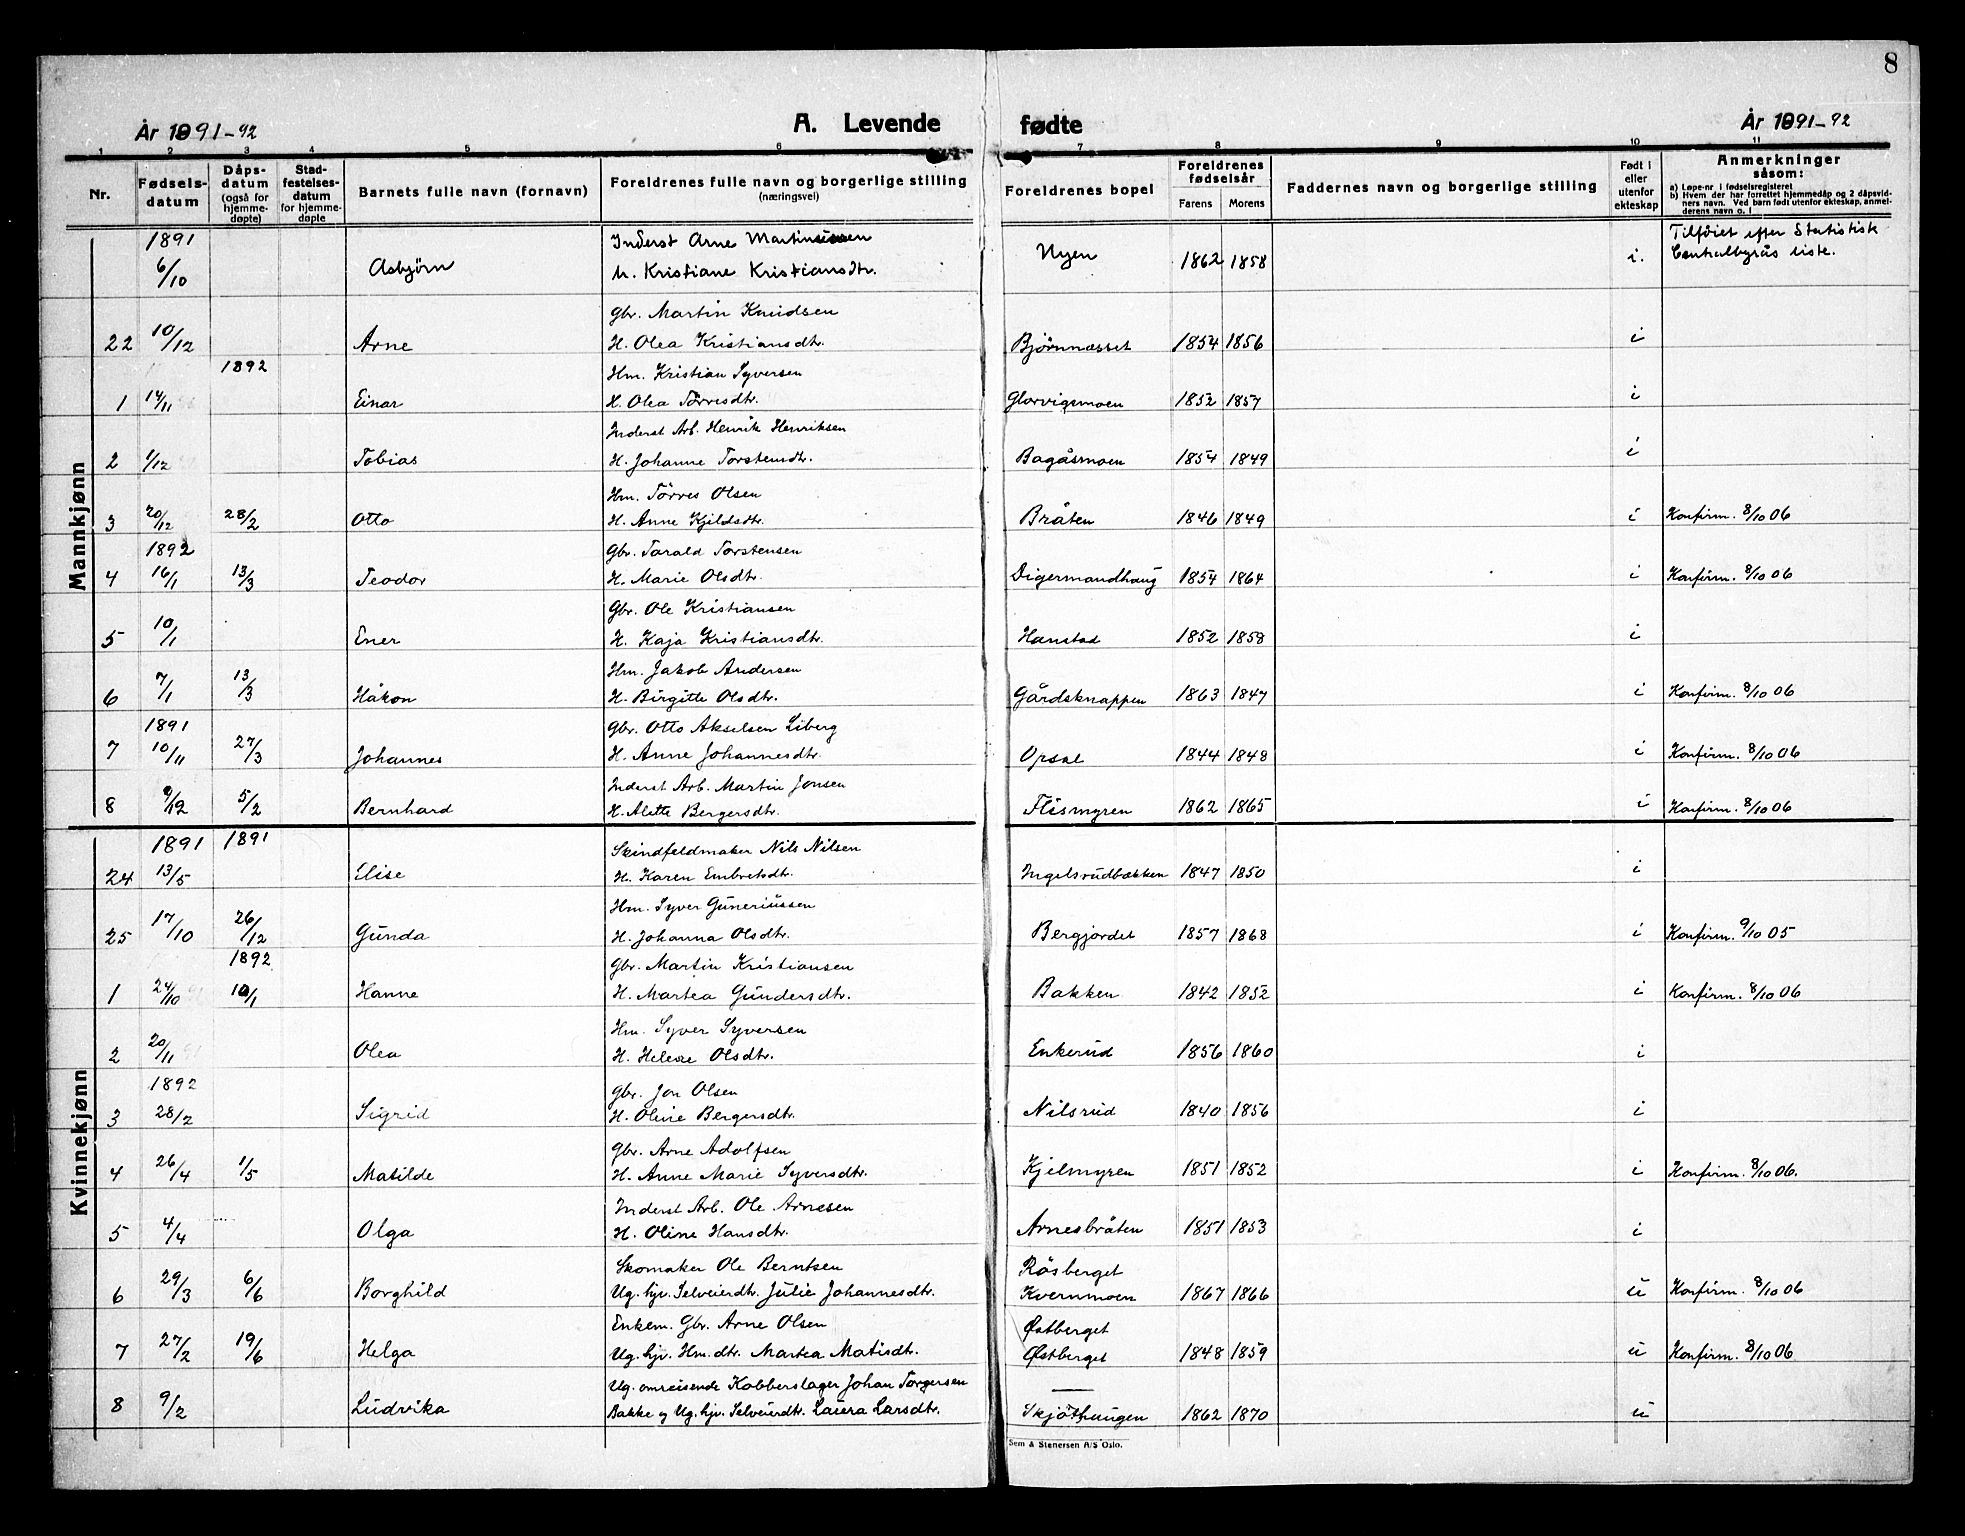 8
År 1891-92
A. Levende fødte
År 1891-92
1 2 3 4 5 6 7 8 9 10 11
Nr. Fødselsdatum Dåpsdatum (også for hjemmedøpte) Stadfestelsesdatum for hjemmedøpte Barnets fulle navn (fornavn) Foreldrenes fulle navn og borgerlige stilling (næringsvei) Foreldrenes bopel Foreldrenes fødselsår Farens Morens Faddernes navn og borgerlige stilling Født i eller utenfor ekteskap Anmerkninger såsom:
a) Løpe-nr i fødselsregisteret
b) Hvem der har forrettet hjemmedåp og 2 dåpsvidners navn. Ved barn født utenfor ekteskap, anmelderens navn o. l
Mannkjønn
1891 Inderst Arne Martinsen Tilføiet efter Statistisk
6/10 Asbjørn M. Kristiane Kristiansdtr. Nyen 1862 1858 i. Centralbyrås liste.
Gbr. Martin Knudsen
22 10/12 Arne H. Olea Kristiansdtr. Bjørnnesset 1854 1856 i
1892 Hm. Kristian Syversen
1 14/11 Einar H. Olea Törresdtr. Glorvigsmoen 1852 1857 i
Inderst Arb. Henrik Henriksen
2 1/12 Tobias H. Johanne Torstensdtr. Bagåsmoen 1854 1849 i
Hm. Törres Olsen
3 20/12 28/2 Otto H. Anne Kjildsdtr. Bråten 1846 1849 i Konfirm. 8/10 06
1892 Gbr. Tarald Torstensen
4 16/1 13/3 Teodor H. Marie Olsdtr. Digermandhaug 1854 1864 i Konfirm. 8/10 06
Gbr. Ole Kristiansen
5 10/1 Ener H. Kaja Kristiansdtr. Hanstad 1852 1858 i
Hm. Jakob Andersen
6 7/1 13/3 Håkon H. Birgitte Olsdtr. Gårdsknappen 1863 1847 i Konfirm. 8/10 06
1891 Gbr. Otto Akselsen Liberg
7 10/11 27/3 Johannes H. Anne Johannesdtr. Opsal 1844 1848 i Konfirm. 8/10 06
Inderst Arb. Martin Jonsen
8 8/12 5/2 Bernhard H. Alette Bergersdtr. Flismyren 1862 1865 i Konfirm. 8/10 06
Kvinnekjønn
1891 1891 Skindfeldmaker Nils Nilsen
24 13/5 Elise H. Karen Embretsdtr. Ingelsrudbækken 1847 1850 i
Hm. Syver Guneriussen
25 17/10 26/12 Gunda H. Johanna Olsdtr. Bergjordet 1857 1868 i Konfirm. 9/10 05
1892 Gbr. Martin Kristiansen
1 24/10 10/1 Hanne H. Martea Gundersdtr. Bakken 1842 1852 i Konfirm. 8/10 06
Hm. Syver Syversen
2 20/11 Olea H. Helene Olsdtr. Enkerud 1856 1860 i
1892 Gbr. Jon Olsen
3 28/2 Sigrid H. Oline Bergersdtr. Nilsrud 1840 1856 i
Gbr. Arne Adolfsen
4 26/4 1/5 Matilde H. Anne Marie Syversdtr. Kjelmyren 1851 1852 i Konfirm. 8/10 06.
Inderst Arb. Ole Arnesen
5 4/4 Olga H. Oline Hansdtr. Arnesbråten 1851 1853 i
Skomaker Ole Berntsen Råsberget
6 29/3 6/6 Borghild Ug. hjv. Selveierdtr. Julie Johannesdtr. Kvernmoen 1867 1866 u Konfirm. 8/10 06
Enkem. Gbr. Arne Olsen Østberget
7 27/2 19/6 Helga Ug. hjv. Hm.dtr. Martea Matisdtr. Østberget 1848 1859 u Konfirm. 8/10 06
Ug. omreisende Kobberslager Johan Torgersen —
8 9/2 Ludvika Bakke og Ug. hjv. Selveierdtr. Laura Larsdtr. Skjöthaugen 1862 1870 u
Sem & Stenersen A/S Oslo.